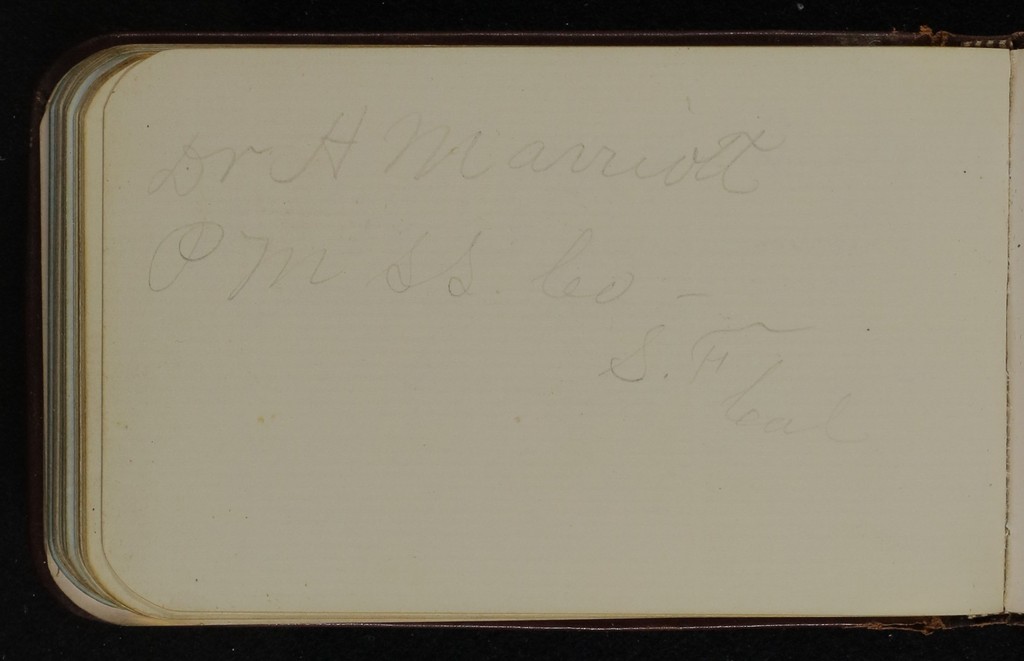 Dr H Marriott
P M SS. Co -
S. F
Cal